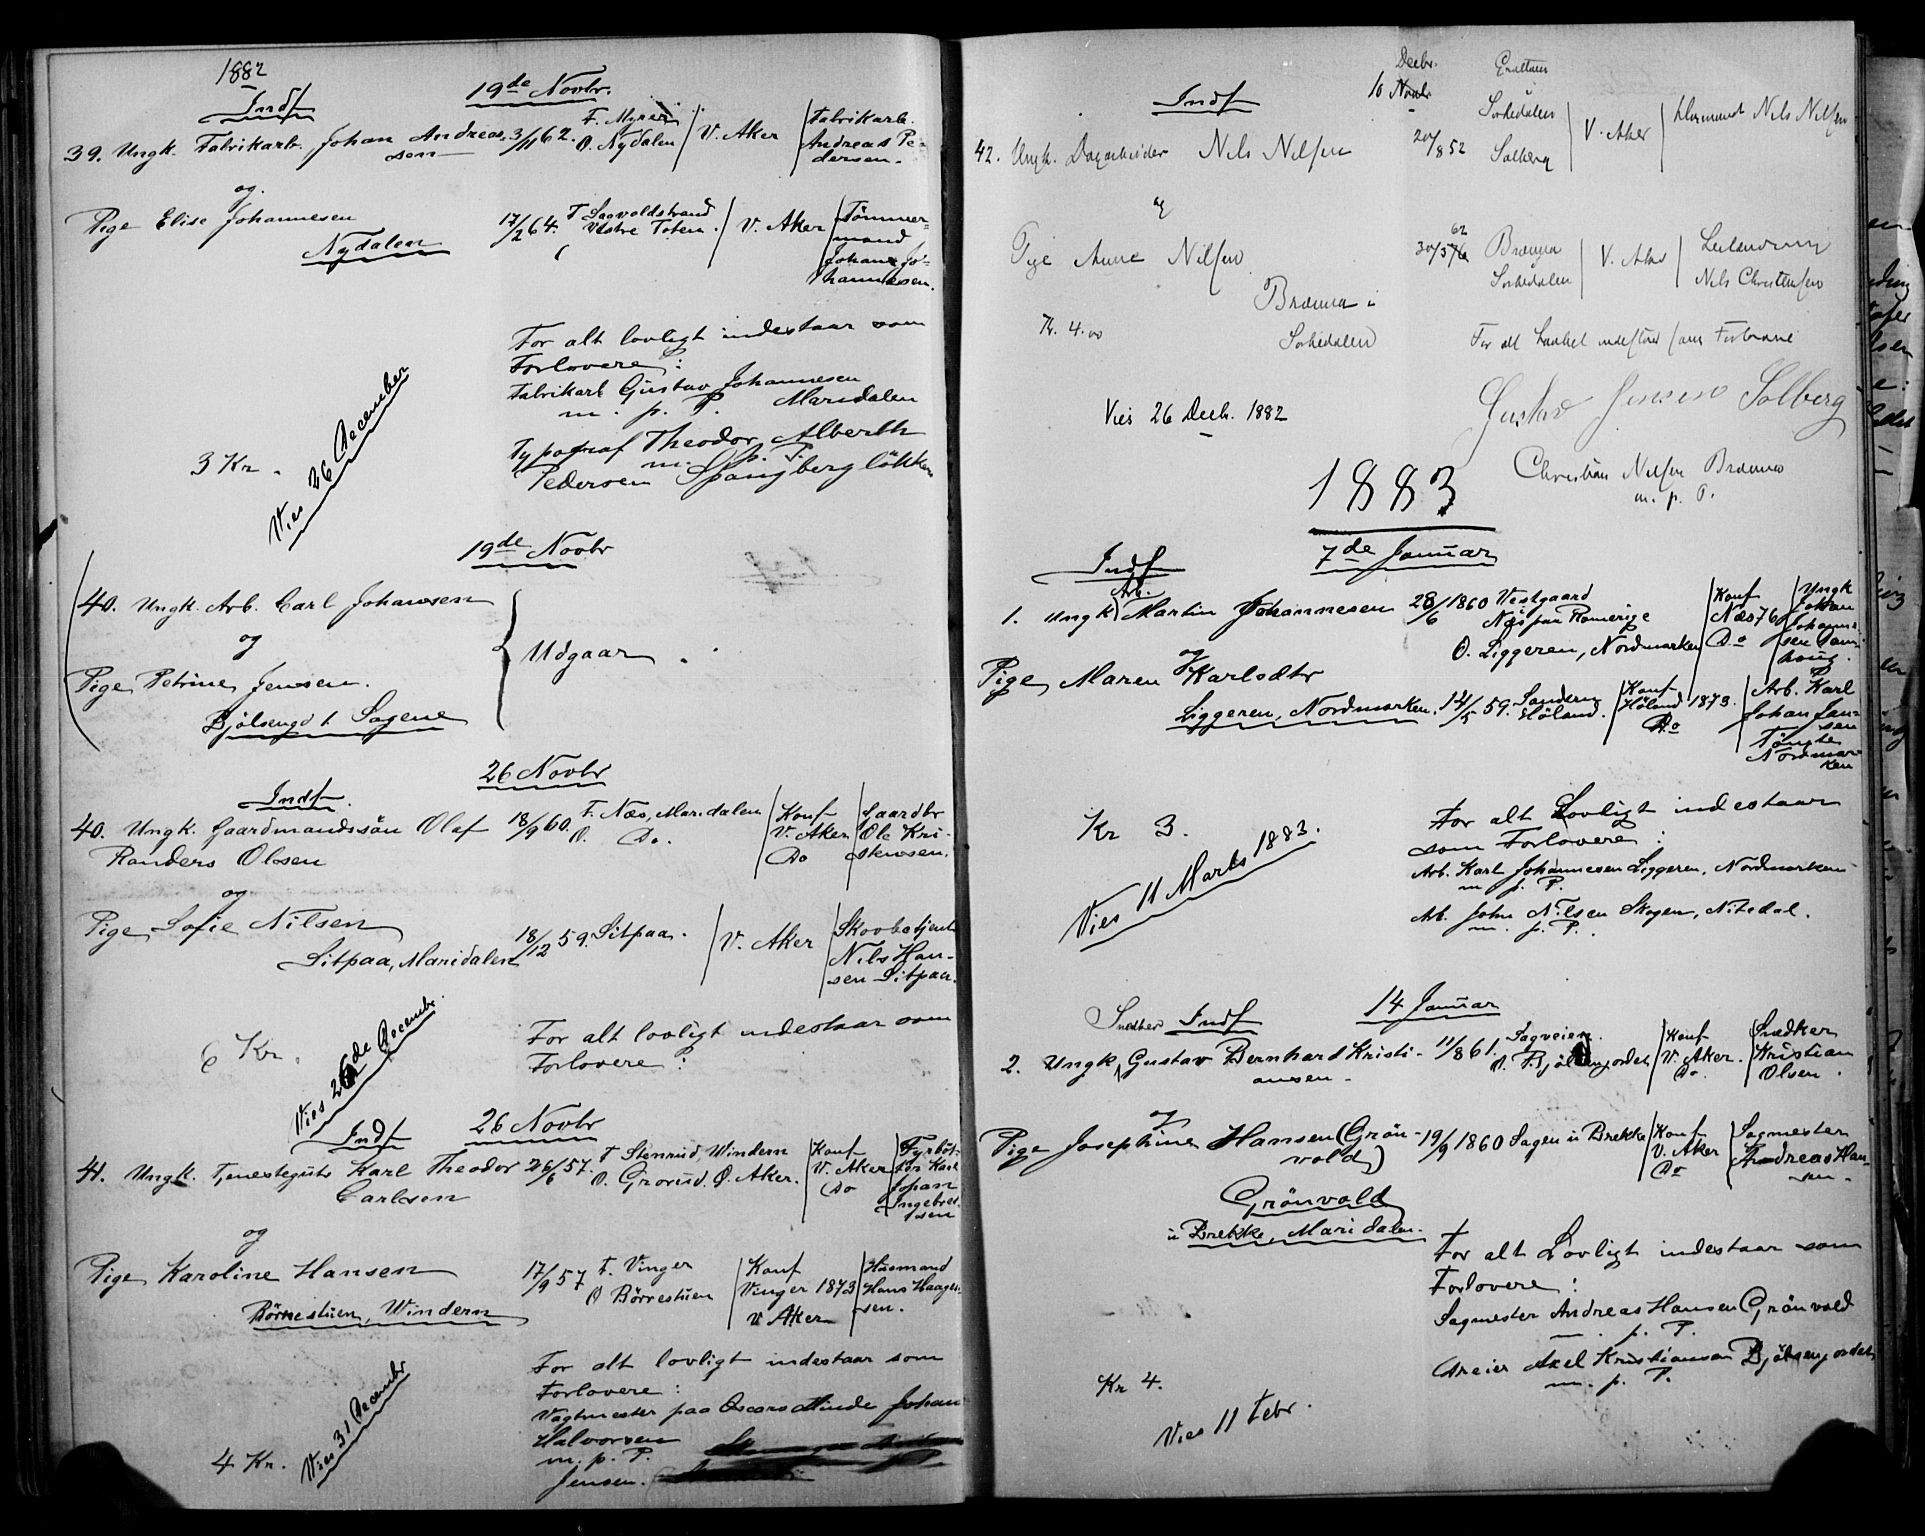 1882
Indf 19de Novbr.
39. Ungk. Fabrikarb. Johan Andreas- 3/11 62. F. Myrer V. Aker Fabrikarb.
sen O. Nydalen Andreas Pe-
dersen.
og
Pige Elise Johannesen 17/2 64. F V. Aker Tömmer-
Nydalen Vestre Toten. mand
Johan Jo-
hannesen.
For alt lovligt indestaar som
Forlovere:
Fabrikarb Gustav Johannesen
m. p. P. Maridalen
Typograf Theodor Alberth
m. p. P.
Pedersen Spangberglökken
3 Kr.
Vies 26 December
19de Novbr
40. Ungk. Arb. Carl Johansen
og Udgaar.
Pige Petrine Jensen.
Bjölsengd t. Sagene
26 Novbr
Indf.
40. Ungk. Gaardmandssön Olaf 18/9 60. F. Næs, Maridalen Konf Gaardbr
Randers Olsen O. Do. V. Aker Ole Kri-
Do stensen.
og
Pige Sofie Nilsen 18/12 59. Sitpaa. V. Aker Skovbetjent
Sitpaa, Maridalen Nils Han-
sen Sitpaa.
6 Kr.
Vies 26de Decembr.
For alt lovligt indestaar som
Forlovere:
Indf 26 Novbr
41. Ungk. Tjenestegut Karl Theodor 26/6 57. F Stenrud, Windern Konf Fyrböt-
Carlsen O. Grorud. Ö. Aker. V. Aker ter Karl
Do Johan
Ingebret-
sen
og
Pige Karoline Hansen 17/9 57 F. Vinger Konf Husmand
Börrestuen, Windern O Börrestuen Vinger 1873 Hans Haagen-
V. Aker sen.
For alt lovligt indestaar som
Forlovere:
Vagtmester paa Oscars Minde Johan
Halvorsen
m. p. P.
Jensen.
4 Kr.
Vies 31 Decembr
Indf 10 Decbr.
42. Ungk. Dagarbeider Nils Nilsen 20/8 52 Sörkedalen V. Aker Nils Nilsen
Solberg
og
Pige Anne Nilsen 30/3 62 Brænna V. Aker
Brænna i Sörkedalen Nils Christensen
Sörkedalen
Kr. 4.00
For alt Lovligt indestaar som Forlovere
Gustav Jensen Solberg
Vies 26 Decb. 1882
Christian Nilsen Brænna
m. p. P.
1883
7de Januar
Indf
1. Ungk Arb. Martin Johannesen 28/6 1860 Vestgaard Konf Ungk
Næs paa Romerige Næs 76 Johan
O. Liggeren, Nordmarken Do Johanne-
sen
og
Pige Maren Karlsdtr
Liggeren, Nordmarken. 14/5 59. Konf Arb. Karl
Höland. Höland 1873. Johan Jan-
Do sen
Nordmar-
ken
Kr 3.
Vies 11 Marts 1883.
For alt Lovligt indestaar
som Forlovere:
Arb. Karl Johannesen Liggeren, Nordmarken
m. p. P.
Arb. John Nilsen Skogen, Nitedal.
m. p. P.
14 Januar
Indf
2. Ungk Snedker Gustav Bernhard Kristi- 11/8 61. Sagveien. Konf Snedker
ansen O. Bjölsenjordet V. Aker. Kristian
Do. Olsen.
og
Pige Josephine Hansen (Grön- 19/9 1860 Sagen u Brekke Konf Sagmester
vold) V. Aker Andreas Han-
Do sen.
Grönvold
u Brekke, Maridalen.
For alt Lovligt indestaar som
Forlovere:
Sagmester Andreas Hansen Grönvold
m. p. P.
Dreier Axel Kristiansen Bjölsenjordet
m. p. P.
Kr 4.
Vies 11 Febr.